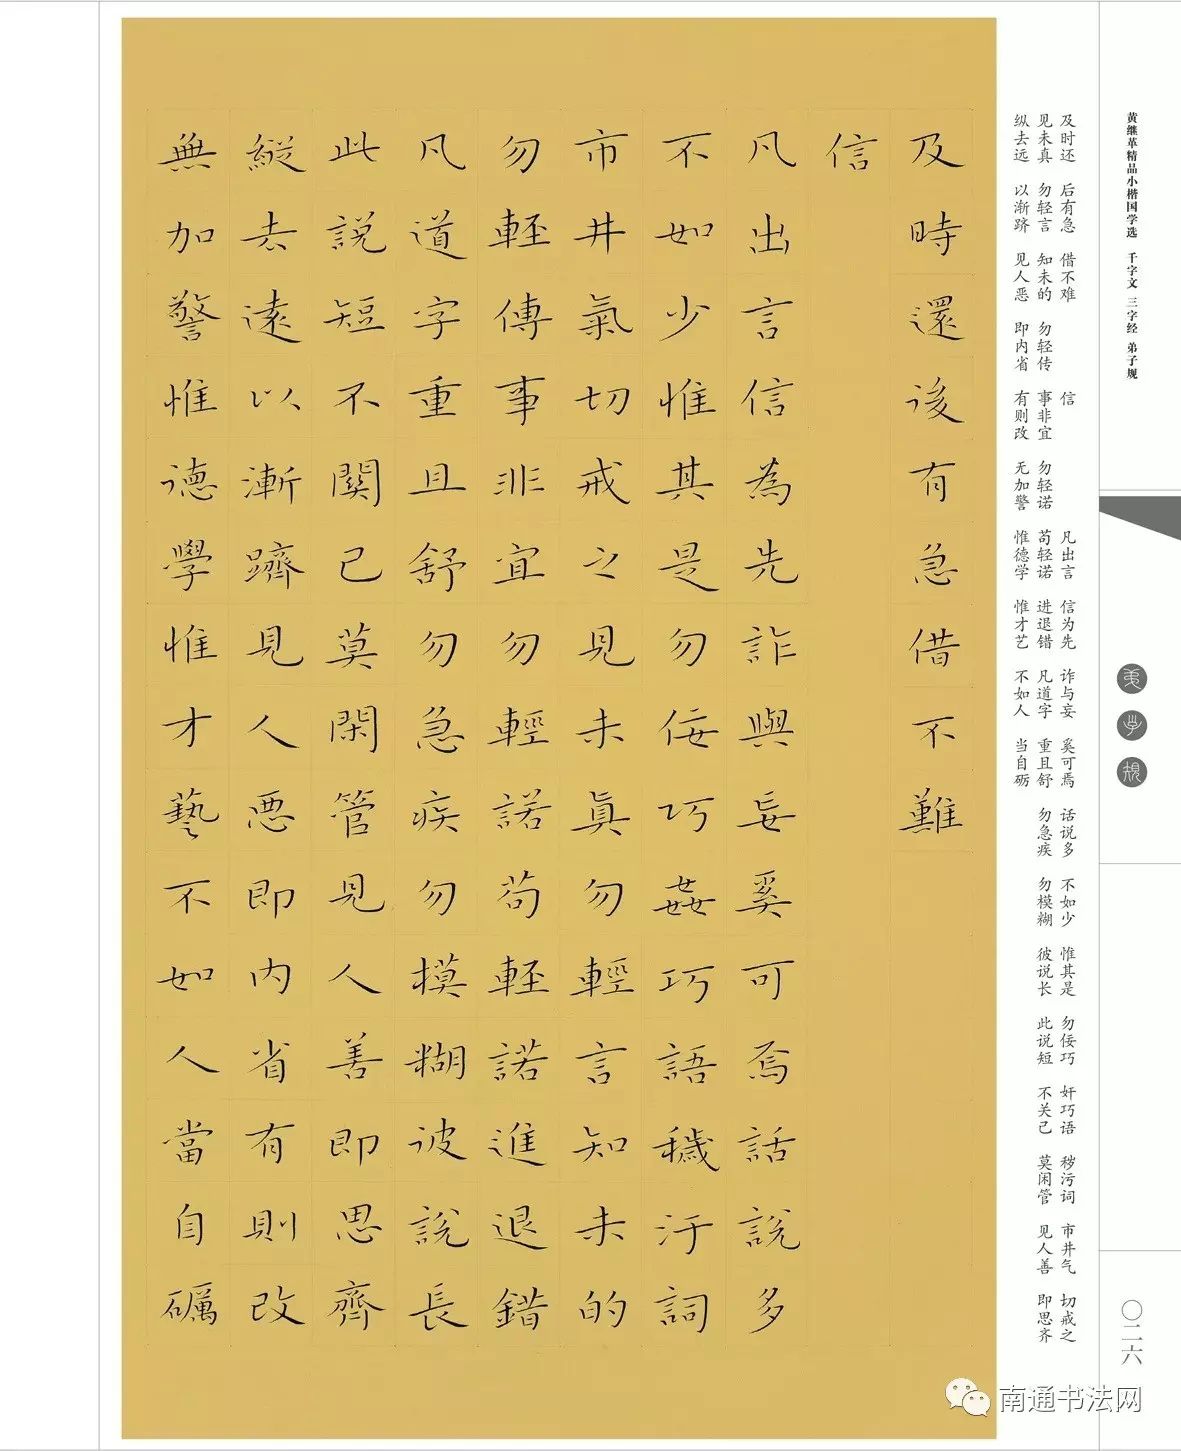 黄继革精品小楷国学选 千字文 三字经 弟子规
弟子规
〇二六
及时还 后有急 借不难 信 凡出言 信为先 诈与妄 奚可焉 话说多 不如少 惟其是 勿佞巧 奸巧语 秽污词 市井气 切戒之
见未真 勿轻言 知未的 勿轻传 事非宜 勿轻诺 苟轻诺 进退错 凡道字 重且舒 勿急疾 勿模糊 彼说长 此说短 不关己 莫闲管 见人善 即思齐
纵去远 以渐跻 见人恶 即内省 有则改 无加警 惟德学 惟才艺 不如人 当自砺
及時還後有急借不難
信
凡出言信為先詐與妄奚可焉話說多
不如少惟其是勿佞巧姦巧語穢汙詞
市井氣切戒之見未眞勿輕言知未的
勿軽傳事非宜勿輕諾苟軽諾進退錯
凡道字重且舒勿急疾勿模糊彼說長
此說短不關己莫閑管見人善即思齊
縱去遠以漸躋見人悪即內省有則改
無加警惟德學惟才藝不如人當自礪
南通书法网